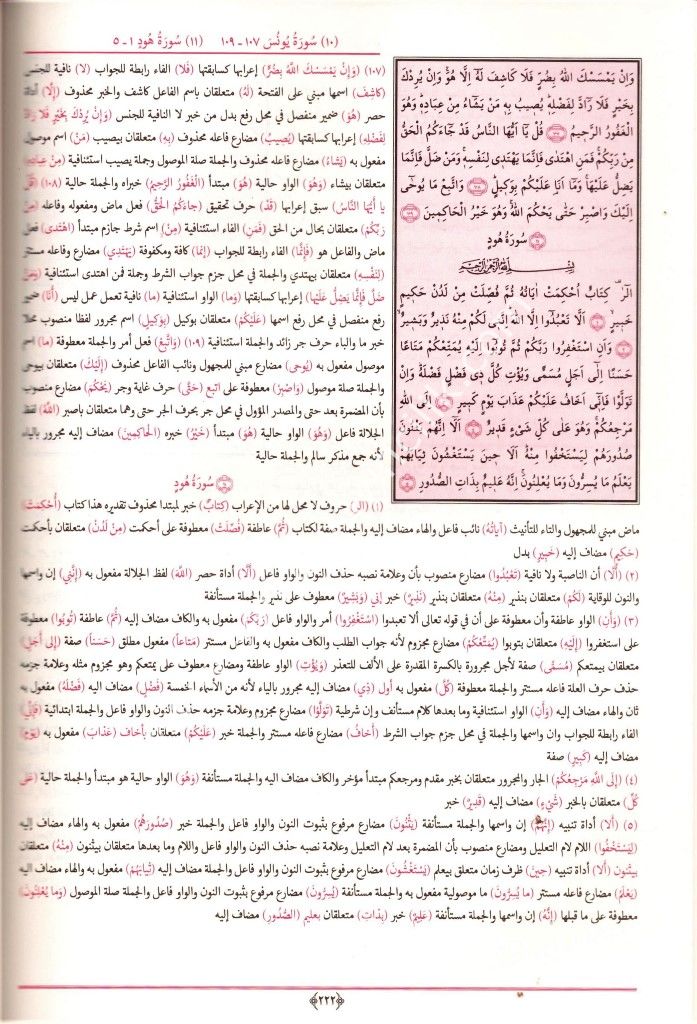 (١٠) سُورَةُ يُونُسَ ١٠٧ - ١٠٩ (١١) سُورَةُ هُودٍ ١ - ٥
وَإِنْ يَمْسَسْكَ اللّٰهُ بِضُرٍّ فَلَا كَاشِفَ لَهُ إِلَّا هُوَ وَإِنْ يُرِدْكَ
بِخَيْرٍ فَلَا رَادَّ لِفَضْلِهِ يُصِيبُ بِهِ مَنْ يَشَاءُ مِنْ عِبَادِهِ وَهُوَ
الْغَفُورُ الرَّحِيمُ ١٠٧ قُلْ يَا أَيُّهَا النَّاسُ قَدْ جَاءَكُمُ الْحَقُّ
مِنْ رَبِّكُمْ فَمَنِ اهْتَدَى فَإِنَّمَا يَهْتَدِي لِنَفْسِهِ وَمَنْ ضَلَّ فَإِنَّمَا
يَضِلُّ عَلَيْهَا وَمَا أَنَا عَلَيْكُمْ بِوَكِيلٍ ١٠٨ وَاتَّبِعْ مَا يُوحَى
إِلَيْكَ وَاصْبِرْ حَتَّى يَحْكُمَ اللّٰهُ وَهُوَ خَيْرُ الْحَاكِمِينَ ١٠٩
سُورَةُ هُودٍ
بِسْمِ اللّٰهِ الرَّحْمٰنِ الرَّحِيمِ
الر كِتَابٌ أُحْكِمَتْ آيَاتُهُ ثُمَّ فُصِّلَتْ مِنْ لَدُنْ حَكِيمٍ
خَبِيرٍ ١ أَلَّا تَعْبُدُوا إِلَّا اللّٰهَ إِنَّنِي لَكُمْ مِنْهُ نَذِيرٌ وَبَشِيرٌ
٢ وَأَنِ اسْتَغْفِرُوا رَبَّكُمْ ثُمَّ تُوبُوا إِلَيْهِ يُمَتِّعْكُمْ مَتَاعًا
حَسَنًا إِلَى أَجَلٍ مُسَمًّى وَيُؤْتِ كُلَّ ذِي فَضْلٍ فَضْلَهُ وَإِنْ
تَوَلَّوْا فَإِنِّي أَخَافُ عَلَيْكُمْ عَذَابَ يَوْمٍ كَبِيرٍ ٣ إِلَى اللّٰهِ
مَرْجِعُكُمْ وَهُوَ عَلَى كُلِّ شَيْءٍ قَدِيرٌ ٤ أَلَا إِنَّهُمْ يَثْنُونَ
صُدُورَهُمْ لِيَسْتَخْفُوا مِنْهُ أَلَا حِينَ يَسْتَغْشُونَ ثِيَابَهُمْ
يَعْلَمُ مَا يُسِرُّونَ وَمَا يُعْلِنُونَ إِنَّهُ عَلِيمٌ بِذَاتِ الصُّدُورِ ٥
(١٠٧) (وَإِنْ يَمْسَسْكَ اللَّهُ بِضُرٍّ) إعرابها كسابقتها (فَلا) الفاء رابطة للجواب (لا) نافية للجنس
(كاشِفَ) اسمها مبني على الفتحة (لَهُ) متعلقان باسم الفاعل كاشف والخبر محذوف (إِلَّا) أداة
حصر (هُوَ) ضمير منفصل في محل رفع بدل من خبر لا النافية للجنس (وَإِنْ يُرِدْكَ بِخَيْرٍ فَلا رَادَّ
لِفَضْلِهِ) إعرابها كسابقتها (يُصِيبُ) مضارع فاعله محذوف (بِهِ) متعلقان بيصيب (مَنْ) اسم موصول
مفعول به (يَشاءُ) مضارع فاعله محذوف والجملة صلة الموصول وجملة يصيب استئنافية (مِنْ عِبادِهِ)
متعلقان بيشاء (وَهُوَ) الواو حالية (هُوَ) مبتدأ (الْغَفُورُ الرَّحِيمُ) خبراه والجملة حالية (١٠٨) (قُلْ
يا أَيُّهَا النَّاسُ) سبق إعرابها (قَدْ) حرف تحقيق (جاءَكُمُ الْحَقُّ) فعل ماض ومفعوله وفاعله (مِنْ
رَبِّكُمْ) متعلقان بحال من الحق (فَمَنِ) الفاء استئنافية (مِنْ) اسم شرط جازم مبتدأ (اهْتَدى) فعل
ماض والفاعل هو (فَإِنَّما) الفاء رابطة للجواب (إِنَّما) كافة ومكفوفة (يَهْتَدِي) مضارع وفاعله مستتر
(لِنَفْسِهِ) متعلقان بيهتدي والجملة في محل جزم جواب الشرط وجملة فمن اهتدى استئنافية (وَمَنْ
ضَلَّ فَإِنَّما يَضِلُّ عَلَيْها) إعرابها كسابقتها (وَما) الواو استئنافية (ما) نافية تعمل عمل ليس (أَنَا) ضمير
رفع منفصل في محل رفع اسمها (عَلَيْكُمْ) متعلقان بوكيل (بِوَكِيلٍ) اسم مجرور لفظا منصوب محلا
خبر ما والباء حرف جر زائد والجملة استئنافية (١٠٩) (وَاتَّبِعْ) فعل أمر والجملة معطوفة (ما) اسم
موصول مفعول به (يُوحى) مضارع مبني للمجهول ونائب الفاعل محذوف (إِلَيْكَ) متعلقان بيوحى
والجملة صلة موصول (وَاصْبِرْ) معطوفة على اتبع (حَتَّى) حرف غاية وجر (يَحْكُمَ) مضارع منصوب
بأن المضمرة بعد حتى والمصدر المؤول في محل جر بحرف الجر حتى وهما متعلقان باصبر (اللَّهُ) لفظ
الجلالة فاعل (وَهُوَ) الواو حالية (هُوَ) مبتدأ (خَيْرُ) خبره (الْحاكِمِينَ) مضاف إليه مجرور بالياء
لأنه جمع مذكر سالم والجملة حالية
سُورَةُ هُودٍ
(١) (الر) حروف لا محل لها من الإعراب (كِتابٌ) خبر لمبتدا محذوف تقديره هذا كتاب (أُحْكِمَتْ)
ماض مبني للمجهول والتاء للتأنيث (آياتُهُ) نائب فاعل والهاء مضاف إليه والجملة صفة لكتاب (ثُمَّ) عاطفة (فُصِّلَتْ) معطوفة على أحكمت (مِنْ لَدُنْ) متعلقان بأحكمت
(حَكِيمٍ) مضاف إليه (خَبِيرٍ) بدل
(٢) (أَلَّا) أن الناصبة ولا نافية (تَعْبُدُوا) مضارع منصوب بأن وعلامة نصبه حذف النون والواو فاعل (أَلَّا) أداة حصر (اللَّهَ) لفظ الجلالة مفعول به (إِنَّنِي) إن واسمها
والنون للوقاية (لَكُمْ) متعلقان بنذير (مِنْهُ) متعلقان بنذير (نَذِيرٌ) خبر إني (وَبَشِيرٌ) معطوف على نذير والجملة مستأنفة
(٣) (وَأَنِ) الواو عاطفة وأن معطوفة على أن في قوله تعالى ألا تعبدوا (اسْتَغْفِرُوا) أمر والواو فاعل (رَبَّكُمْ) مفعول به والكاف مضاف إليه (ثُمَّ) عاطفة (تُوبُوا) معطوفة
على استغفروا (إِلَيْهِ) متعلقان بتوبوا (يُمَتِّعْكُمْ) مضارع مجزوم لأنه جواب الطلب والكاف مفعول به والفاعل مستتر (مَتاعاً) مفعول مطلق (حَسَناً) صفة (إِلى أَجَلٍ)
متعلقان بيمتعكم (مُسَمًّى) صفة لأجل مجرورة بالكسرة المقدرة على الألف للتعذر (وَيُؤْتِ) الواو عاطفة ومضارع معطوف على يمتعكم وهو مجزوم مثله وعلامة جزمه
حذف حرف العلة فاعله مستتر والجملة معطوفة (كُلَّ) مفعول به أول (ذِي) مضاف إليه مجرور بالياء لأنه من الأسماء الخمسة (فَضْلٍ) مضاف اليه (فَضْلَهُ) مفعول به
ثان والهاء مضاف إليه (وَأَنِ) الواو استئنافية وما بعدها كلام مستأنف وإن شرطية (تَوَلَّوْا) مضارع مجزوم وعلامة جزمه حذف النون والواو فاعل والجملة ابتدائية (فَإِنِّي)
الفاء رابطة للجواب وان واسمها والجملة في محل جزم جواب الشرط (أَخافُ) مضارع فاعله مستتر والجملة خبر (عَلَيْكُمْ) متعلقان بأخاف (عَذابَ) مفعول به (يَوْمٍ)
مضاف إليه (كَبِيرٍ) صفة
(٤) (إِلَى اللَّهِ مَرْجِعُكُمْ) الجار والمجرور متعلقان بخبر مقدم ومرجعكم مبتدأ مؤخر والكاف مضاف اليه والجملة مستأنفة (وَهُوَ) الواو حالية هو مبتدأ والجملة حالية (عَلى
كُلِّ) متعلقان بالخبر (شَيْءٍ) مضاف إليه (قَدِيرٌ) خبر
(٥) (أَلا) أداة تنبيه (إِنَّهُمْ) إن واسمها والجملة مستأنفة (يَثْنُونَ) مضارع مرفوع بثبوت النون والواو فاعل والجملة خبر (صُدُورَهُمْ) مفعول به والهاء مضاف إليه
(لِيَسْتَخْفُوا) اللام لام التعليل ومضارع منصوب بأن المضمرة بعد لام التعليل وعلامة نصبه حذف النون والواو فاعل واللام وما بعدها متعلقان بيثنون (مِنْهُ) متعلقان
بيثنون (أَلا) أداة تنبيه (حِينَ) ظرف زمان متعلق بيعلم (يَسْتَغْشُونَ) مضارع مرفوع بثبوت النون والواو فاعل والجملة مضاف إليه (ثِيابَهُمْ) مفعول به والهاء مضاف اليه
(يَعْلَمُ) مضارع فاعله مستتر (ما يُسِرُّونَ) ما موصولية مفعول به والجملة مستأنفة (يُسِرُّونَ) مضارع مرفوع بثبوت النون والواو فاعل والجملة صلة الموصول (وَما يُعْلِنُونَ)
معطوفة على ما قبلها (إِنَّهُ) إن واسمها والجملة مستأنفة (عَلِيمٌ) خبر (بِذاتِ) متعلقان بعليم (الصُّدُورِ) مضاف إليه
﴿٢٢٢﴾